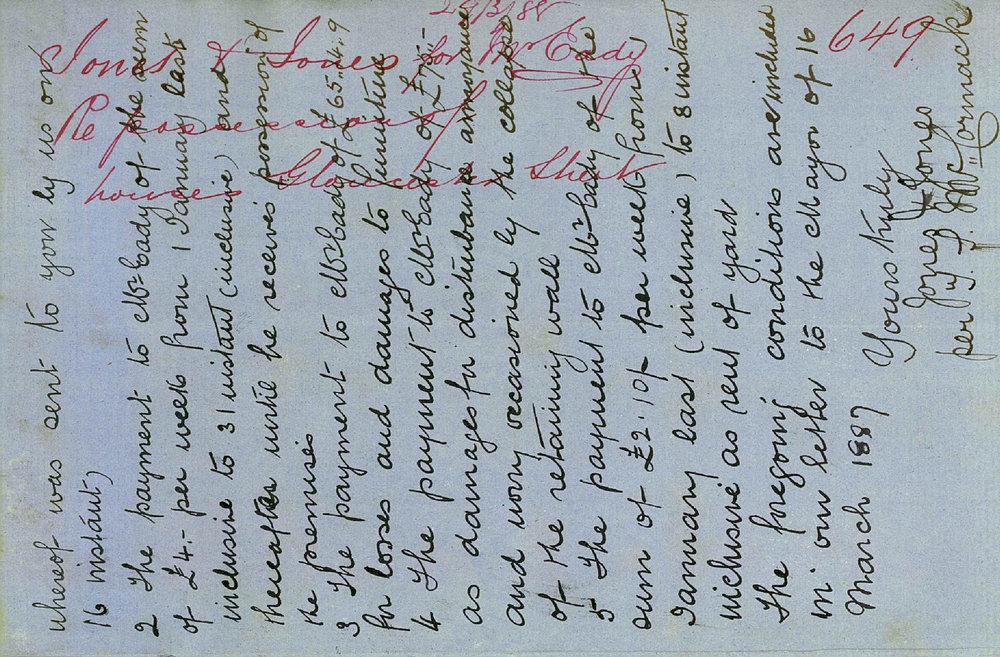 whereof was sent to you by us on
16 instant)
2 The payment to Mr Eady of the sum
of £4.- per week from 1 January last
inclusive to 31 instant (inclusive) and
thereafter until he receives possession of
the premises
3 The payment to Mr Eady of £65.4.9
for losses and damages to furniture
4 The payment to Mr Eady of £75.-
as damages for disturbance annoyance
and worry occasioned by the collapse
of the retaining wall
5 The payment to Mr Eady of the
sum of £2.10/- per week from 1
January last (inclusive) to 8 instant
inclusive as rent of yard
The foregoing conditions are included
in our letter to the Mayor of 16
March 1887
Yours truly
Jones & Jones
per W. J. McCormack
29/3/88
649
Jones & Jones for Mr Eady
Re possession of
houses Gloucester Street